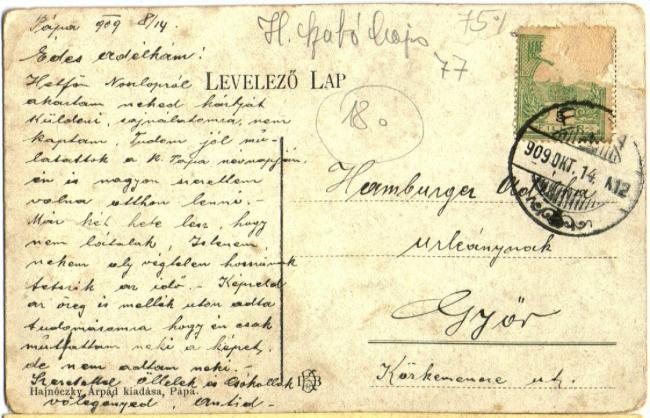 Pápa 909 8/14
H. Szabó Lajos
75.-
77
18.
LEVELEZŐ LAP
Édes
Hétfőn Noszlopról
akartam neked kártyát
küldeni, sajnálatomra, nem
kaptam. Tudom jól mu-
lattatok a K. Papa nevnapján,
én is nagyon szerettem
volna otthon lenni. -
Már két hete lesz, hogy
nem láttalak, Istenem,
nekem oly végtelen hosszúnak
tetszik az idő. - Képzeld
az öreg is mellék uton adta
tudomásomra hogy én csak
mutattam neki a képet,
de nem adtam neki. -
Szeretettel öllelek és csókollak
vőlegényed,
909 OKT. 14. A12
Hamburger
urleánynak
Győr
Kőrkemence ut.
Hajnóczky Árpád kiadása, Pápa.